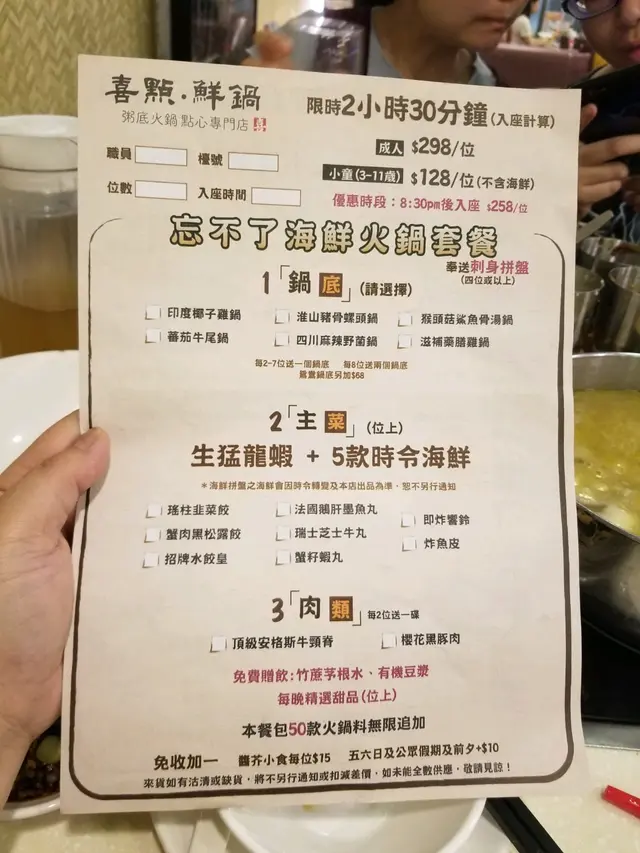 喜點·鮮鍋
粥底火鍋點心專門店
限時2小時30分鐘(入座計算)
成人 $298/位
小童(3-11歲) $128/位(不含海鮮)
優惠時段:8:30pm後入座 $258/位
職員 檯號
位數 入座時間
忘不了海鮮火鍋套餐
奉送刺身拼盤
(四位或以上)
1「鍋底」(請選擇)
印度椰子雞鍋 淮山豬骨螺頭鍋 猴頭菇鯊魚骨湯鍋
蕃茄牛尾鍋 四川麻辣野菌鍋 滋補藥膳雞鍋
每2-7位送一個鍋底 每8位送兩個鍋底
鴛鴦鍋底另加$68
2「主菜」(位上)
生猛龍蝦 + 5款時令海鮮
*海鮮拼盤之海鮮會因時令轉變及本店出品為準,恕不另行通知
瑤柱韭菜餃 法國鵝肝墨魚丸 即炸響鈴
蟹肉黑松露餃 瑞士芝士牛丸 炸魚皮
招牌水餃皇 蟹籽蝦丸
3「肉類」每2位送一碟
頂級安格斯牛頸脊 櫻花黑豚肉
免費贈飲:竹蔗茅根水、有機豆漿
每晚精選甜品(位上)
本餐包50款火鍋料無限追加
免收加一 醬芥小食每位$15 五六日及公眾假期及前夕+$10
來貨如有沽清或缺貨,將不另行通知或扣減差價,如未能全數供應,敬請見諒!